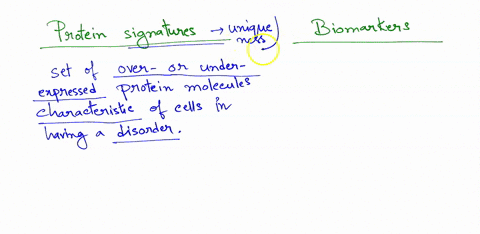 Protein signatures → uniqueness)
Biomarkers
set of over- or under-
expressed protein molecules
characteristic of cells in
having a disorder.